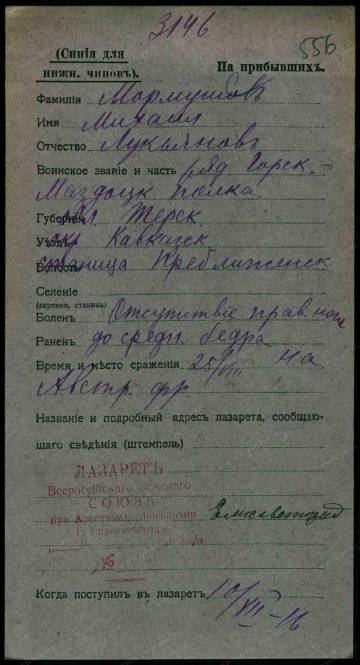 3146
556
(Синія для
нижн. чиновъ).
На прибывшихъ.
Фамилія Мормушовъ
Имя Михаил
Отчество Лукьяновъ
Воинское званіе и часть ряд Горск.-
Маздоцк полка
Губернія Терск
Уѣздъ Кавказск
станица Преближенск
Селеніе
(деревня, станица)
Боленъ Отсутствіе прав. ноги
Раненъ до средн. бедра
Время и мѣсто сраженія 25/VIII на
Австр. фр
Названіе и подробный адресъ лазарета, сообщаю-
щаго свѣдѣнія (штемпель)
ЛАЗАРЕТЪ
Всероссійскаго Земскаго
СОЮЗА
при Арестномъ помѣщеніи
Елисаветград
№
Когда поступилъ въ лазаретъ 10/XII-16